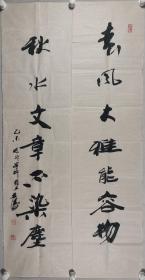 春风大雅能容物
秋水文章不染尘
乙未